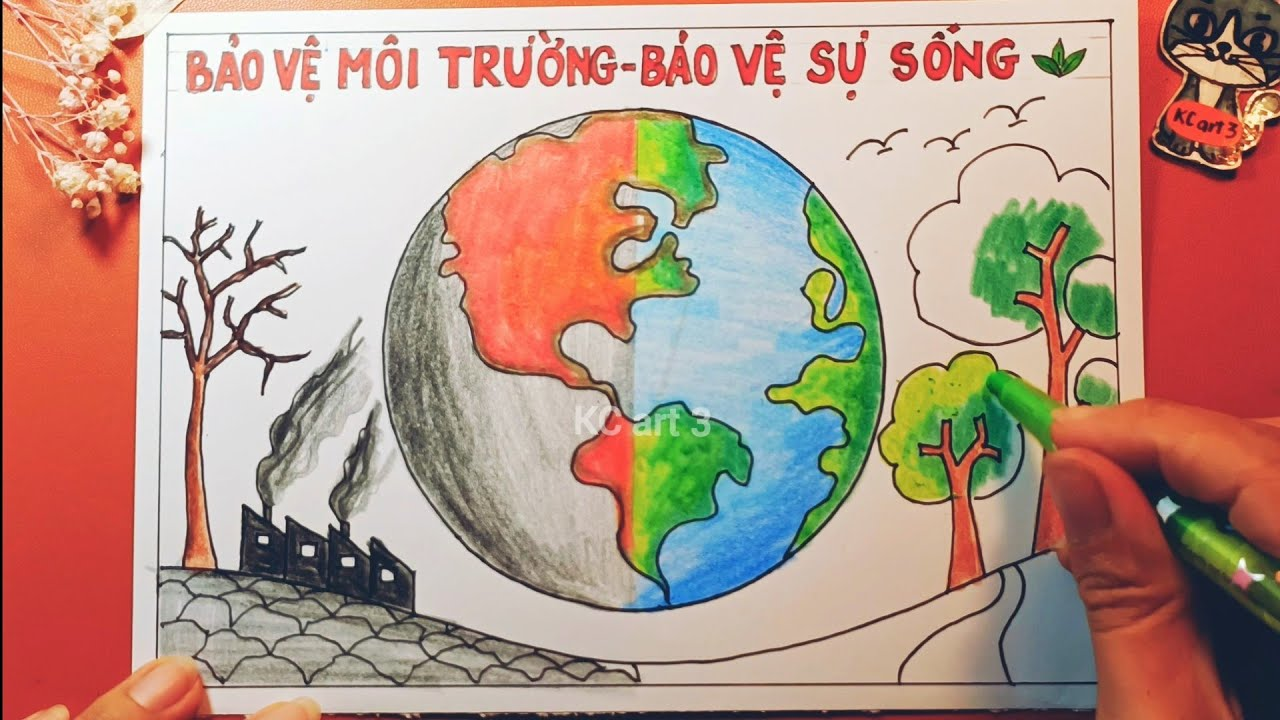 BẢO VỆ MÔI TRƯỜNG-BẢO VỆ SỰ SỐNG
KC art 3
KC art 3